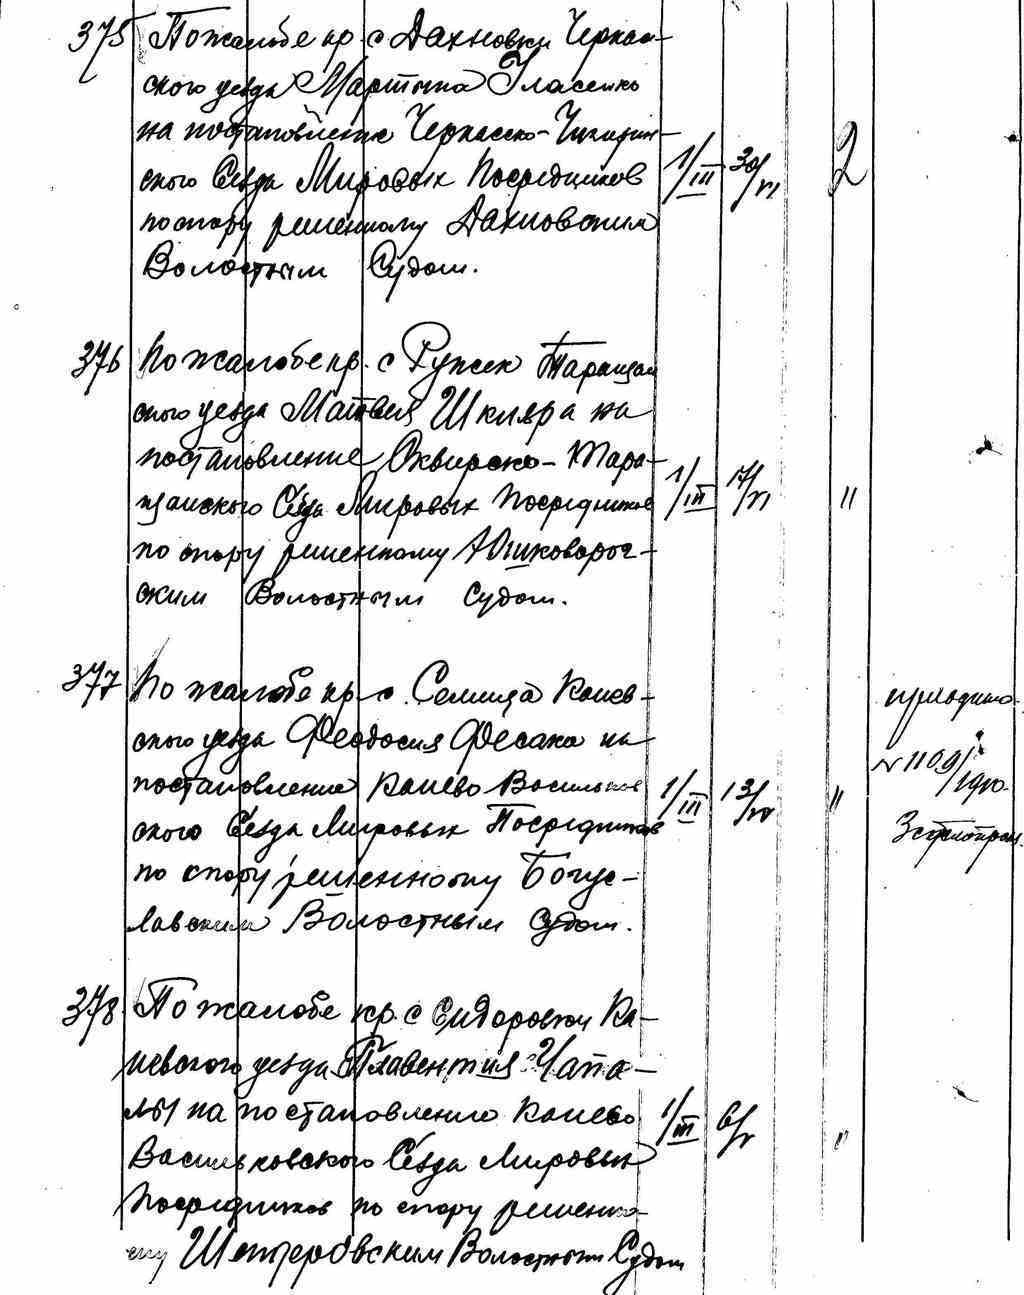 375 По жалобе кр. с Дахновки Черкас-
ского уезда Мартына Власенко
на постановление Черкасско-Чигирин-
ского Сезда Мировых Посредников 1/III 30/VI 2
по спору решенному Дахновским
Волостным Судом.
376 По жалобе кр. с Ружек Таращан
ского уезда Матвея Шкляра на
постановление Сквирско-Тара-
щанского Сезда Мировых Посредников 1/III 17/VI "
по спору решенному
ским Волостным Судом.
377 По жалобе кр. с. Семигда Канев-
ского уезда Феодосия Фесака на
постановление Канево Васильков 1/III 13/IV "
ского Сезда Мировых Посредников
по спору решенному Богус-
лавским Волостным Судом.
№ 1109/
378 По жалобе кр. с Сидоровки Ка-
невского уезда Чапа-
лы на постановление Канево 1/III 6/V "
Васильковского Сезда Мировых
Посредников по спору решенно-
му Шендеровским Волостным Судом